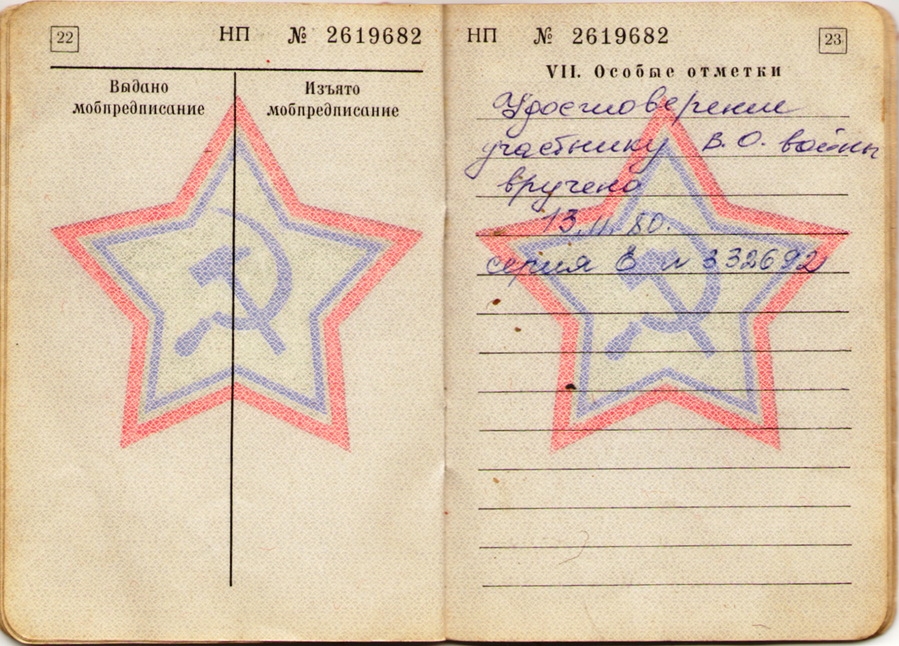 22
НП № 2619682
Выдано
мобпредписание
Изъято
мобпредписание
НП № 2619682
23
VII. Особые отметки
Удостоверение
участнику В. О. войны
вручено
13.11.80.
серия Е № 332692